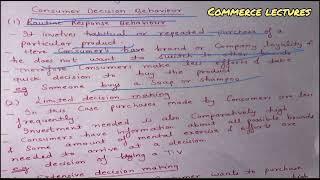 Commerce lectures
Consumer Decision Behaviour
(1) Routine Response Behaviour
It involves habitual or repeated purchase of a
particular product.
Here Consumers have brand or Company loyality &
he does not want to switch
Therefore Consumers make less efforts & take
quick decision to buy the product
eg Someone buys a soap or shampoo
(2) Limited decision making
In this Case purchases made by Consumer are less
frequently
Investment needed is also Comparatively high
Consumers have information about all possible brands
& Some amount of mental exercise & efforts are
needed to arrive at a decision
eg decision of buying a T.V
Extensive decision making
Consumer wants to purchase